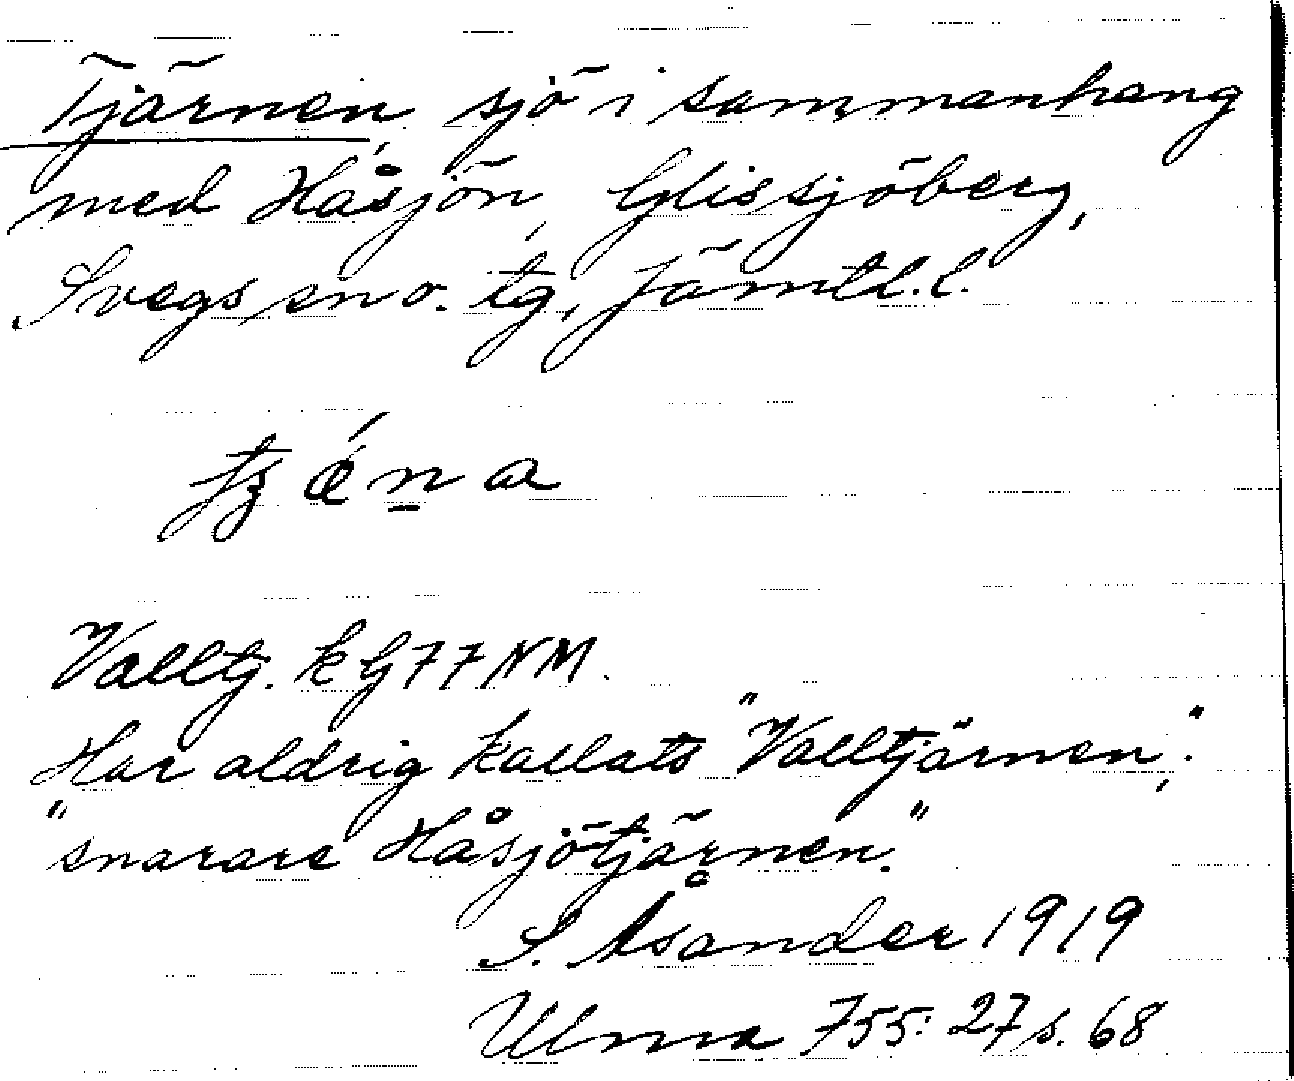 Tjärnen, sjö i sammanhang
med Håsjön, Glissjöberg,
Svegs sn o. tg, Jämtl. l.
ǽn̲a
Valltj. k G77NM.
Har aldrig kallats "Valltjärnen,"
"snarare Håsjötjärnen."
S. Åsander 1919
Ulma 755:27 s. 68